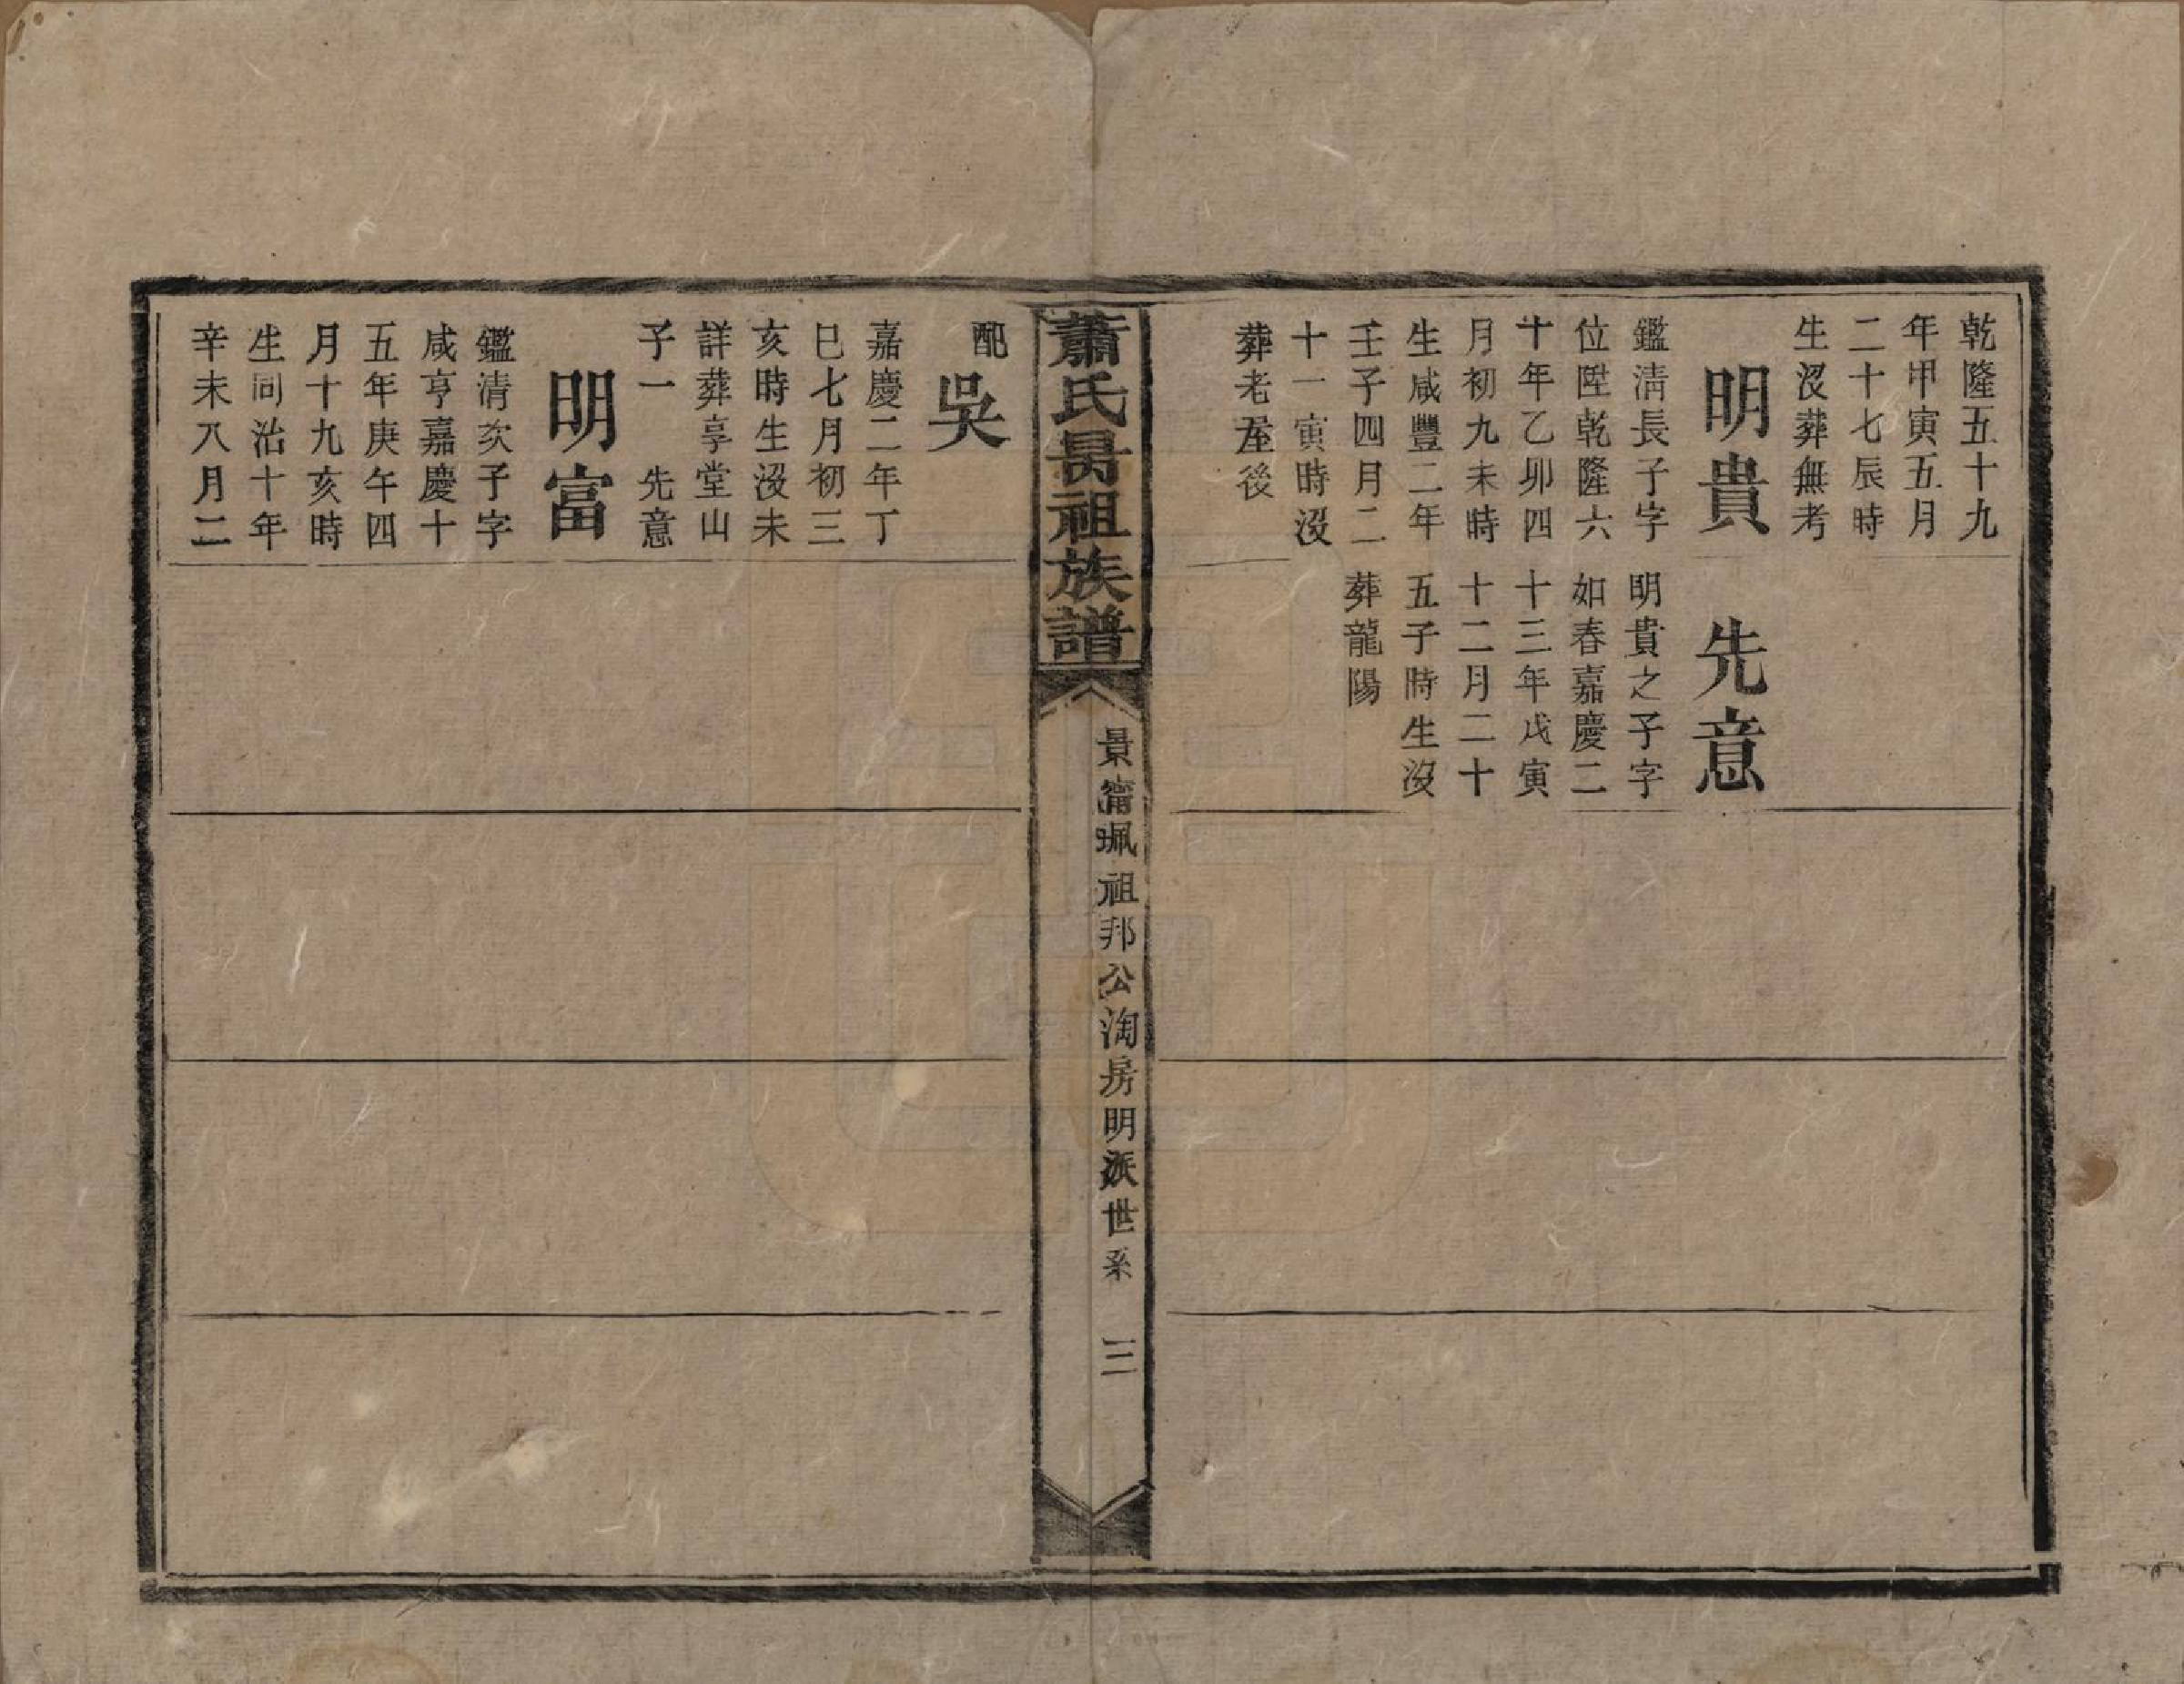 乾隆五十九
年甲寅五月
二十七辰時
生沒葬無考
明貴
鑑清長子字
位陞乾隆六
十年乙卯四
月初九未時
生咸豐二年
壬子四月二
十一寅時沒
葬老屋後
先意
明貴之子字
如春嘉慶二
十三年戊寅
十二月二十
五子時生沒
葬龍陽
蕭氏昺祖族譜
景甯珮祖邦公淘房明派世系 三
配吳
嘉慶二年丁
巳七月初三
亥時生沒未
詳葬享堂山
子一 先意
明富
鑑清次子字
咸亨嘉慶十
五年庚午四
月十九亥時
生同治十年
辛未八月二